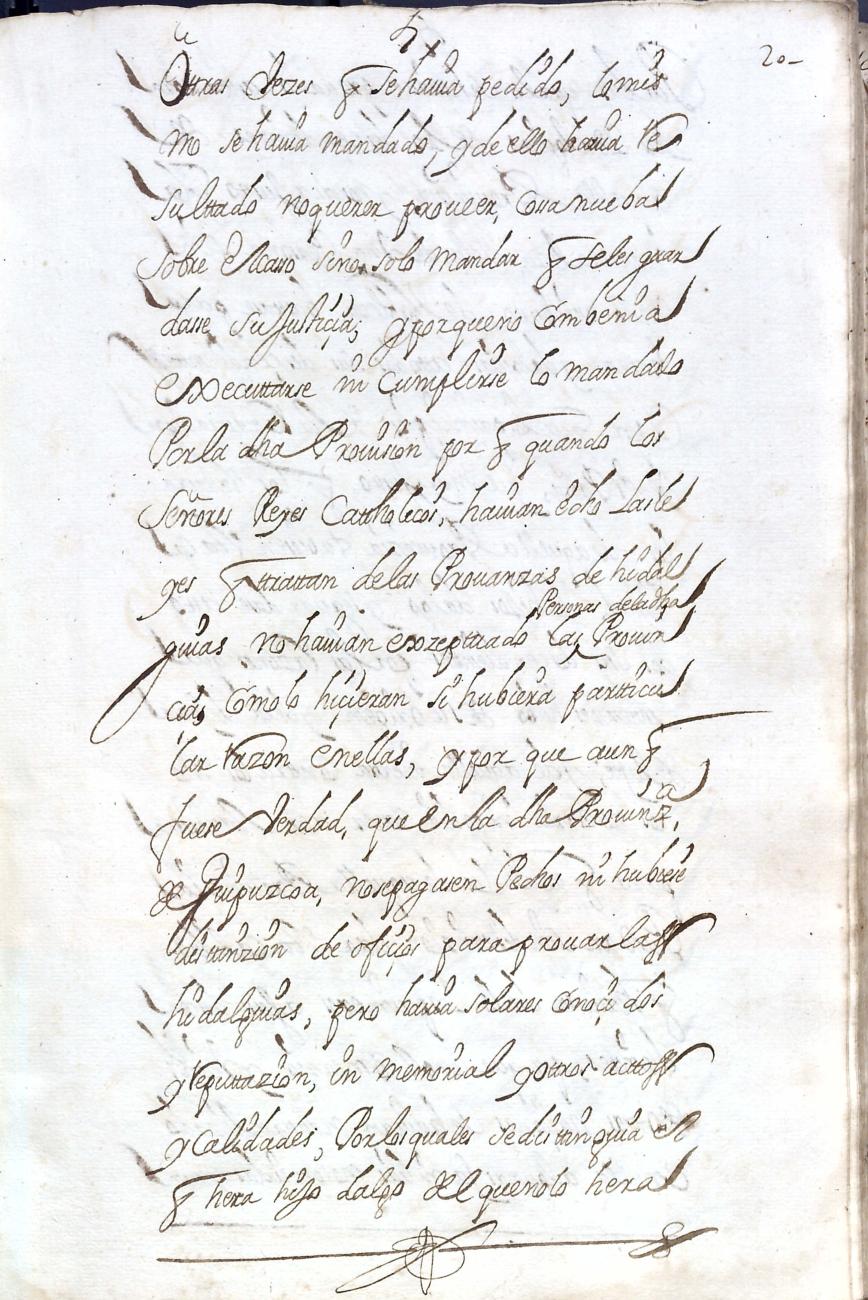 20-
Ottras Vezes q se hauia pedido, lo mis
mo se hauia mandado, y de ello hauia Re
sulttado no querer proueer, Cossa nueba
sobre El caso sino, solo mandar q se les guar
dasse su Justicia; y porque no Combenia
Executtarse ni Cumplirse lo mandado
Por la dha Prouision por q quando los
Señores Reyes Cattholicos, hauian Echo las le
yes q trattan de las Prouanzas de hidal
guias no hauian exzepttado las Personas de la dha Prouin
cia, Como lo hiçieran si hubiera particu
lar razon En ellas, y por que aun q
fuese Verdad, que En la dha Prouinza,
de Guipuzcoa, no se pagasen Pechos ni hubiese
disttinzion de ofiçios para prouar las
hidalguias, pero hauia solares Conoçidos
y reputtazion, in memorial y ottros acttos
y Calidades, Por los quales se disttinguia el
q hera hijo dalgo del que no lo hera